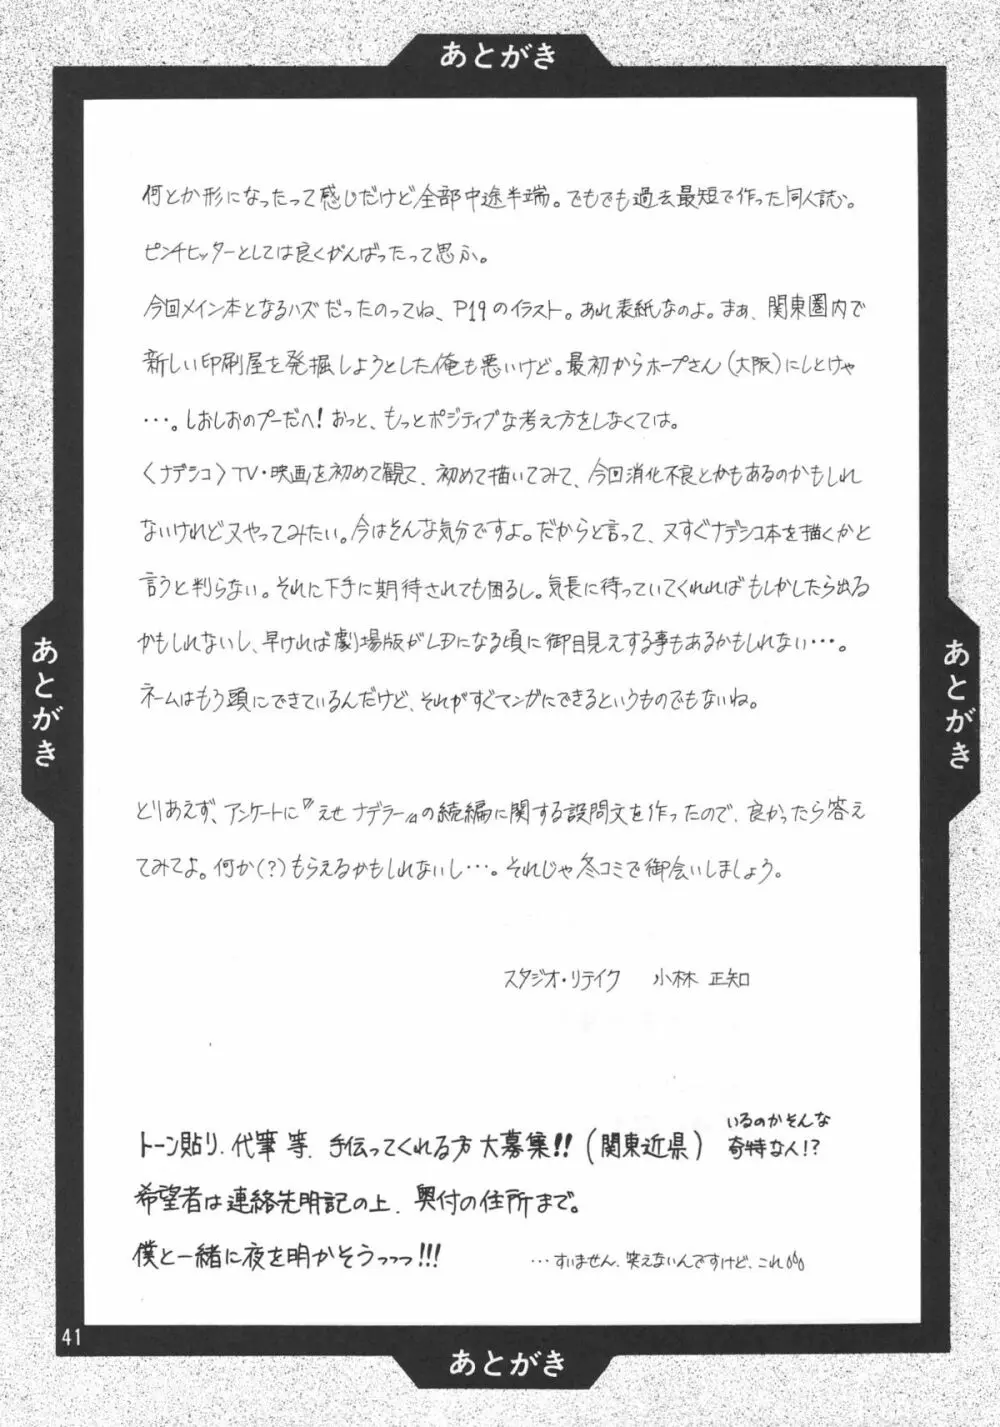 あとがき
何とか形になったって感じだけど全部中途半端。でもでも過去最短で作った同人誌。
ピンチヒッターとしては良くがんばったって思ふ。
今回メイン本となるハズだったのってね、P19のイラスト。あれ表紙なのよ。まぁ、関東圏内で
新しい印刷屋を発掘しようとした俺も悪いけど。最初からホープさん(大阪)にしとけゃ
…。しおしおのプーだへ!おっと、もっとポジティブな考え方をしなくては。
〈ナデシコ〉TV・映画を初めて観て、初めて描いてみて、今回消化不良とかもあるのかもしれ
ないけれど又やってみたい。今はそんな気分ですよ。だからと言って、又すぐナデシコ本を描くかと
言うと判らない。それに下手に期待されても困るし。気長に待っていてくれればもしかしたら出る
かもしれないし、早ければ劇場版がLDになる頃に御目見えする事もあるかもしれない…。
ネームはもう頭にできているんだけど、それがすぐマンガにできるというものでもないね。
とりあえず、アンケートに『えせナデラー』の続編に関する設問文を作ったので、良かったら答え
てみてよ。何か(?)もらえるかもしれないし…。それじゃ冬コミで御会いしましょう。
スタジオ・リテイク 小林 正知
トーン貼り、代筆 等、手伝ってくれる方 大募集!!(関東近県)
いるのかそんな
奇特な人!?
希望者は連絡先明記の上、奥付の住所まで。
僕と一緒に夜を明かそうっっっ!!!
…すいません、笑えないんですけど、これ
あとがき
あとがき
41
あとがき